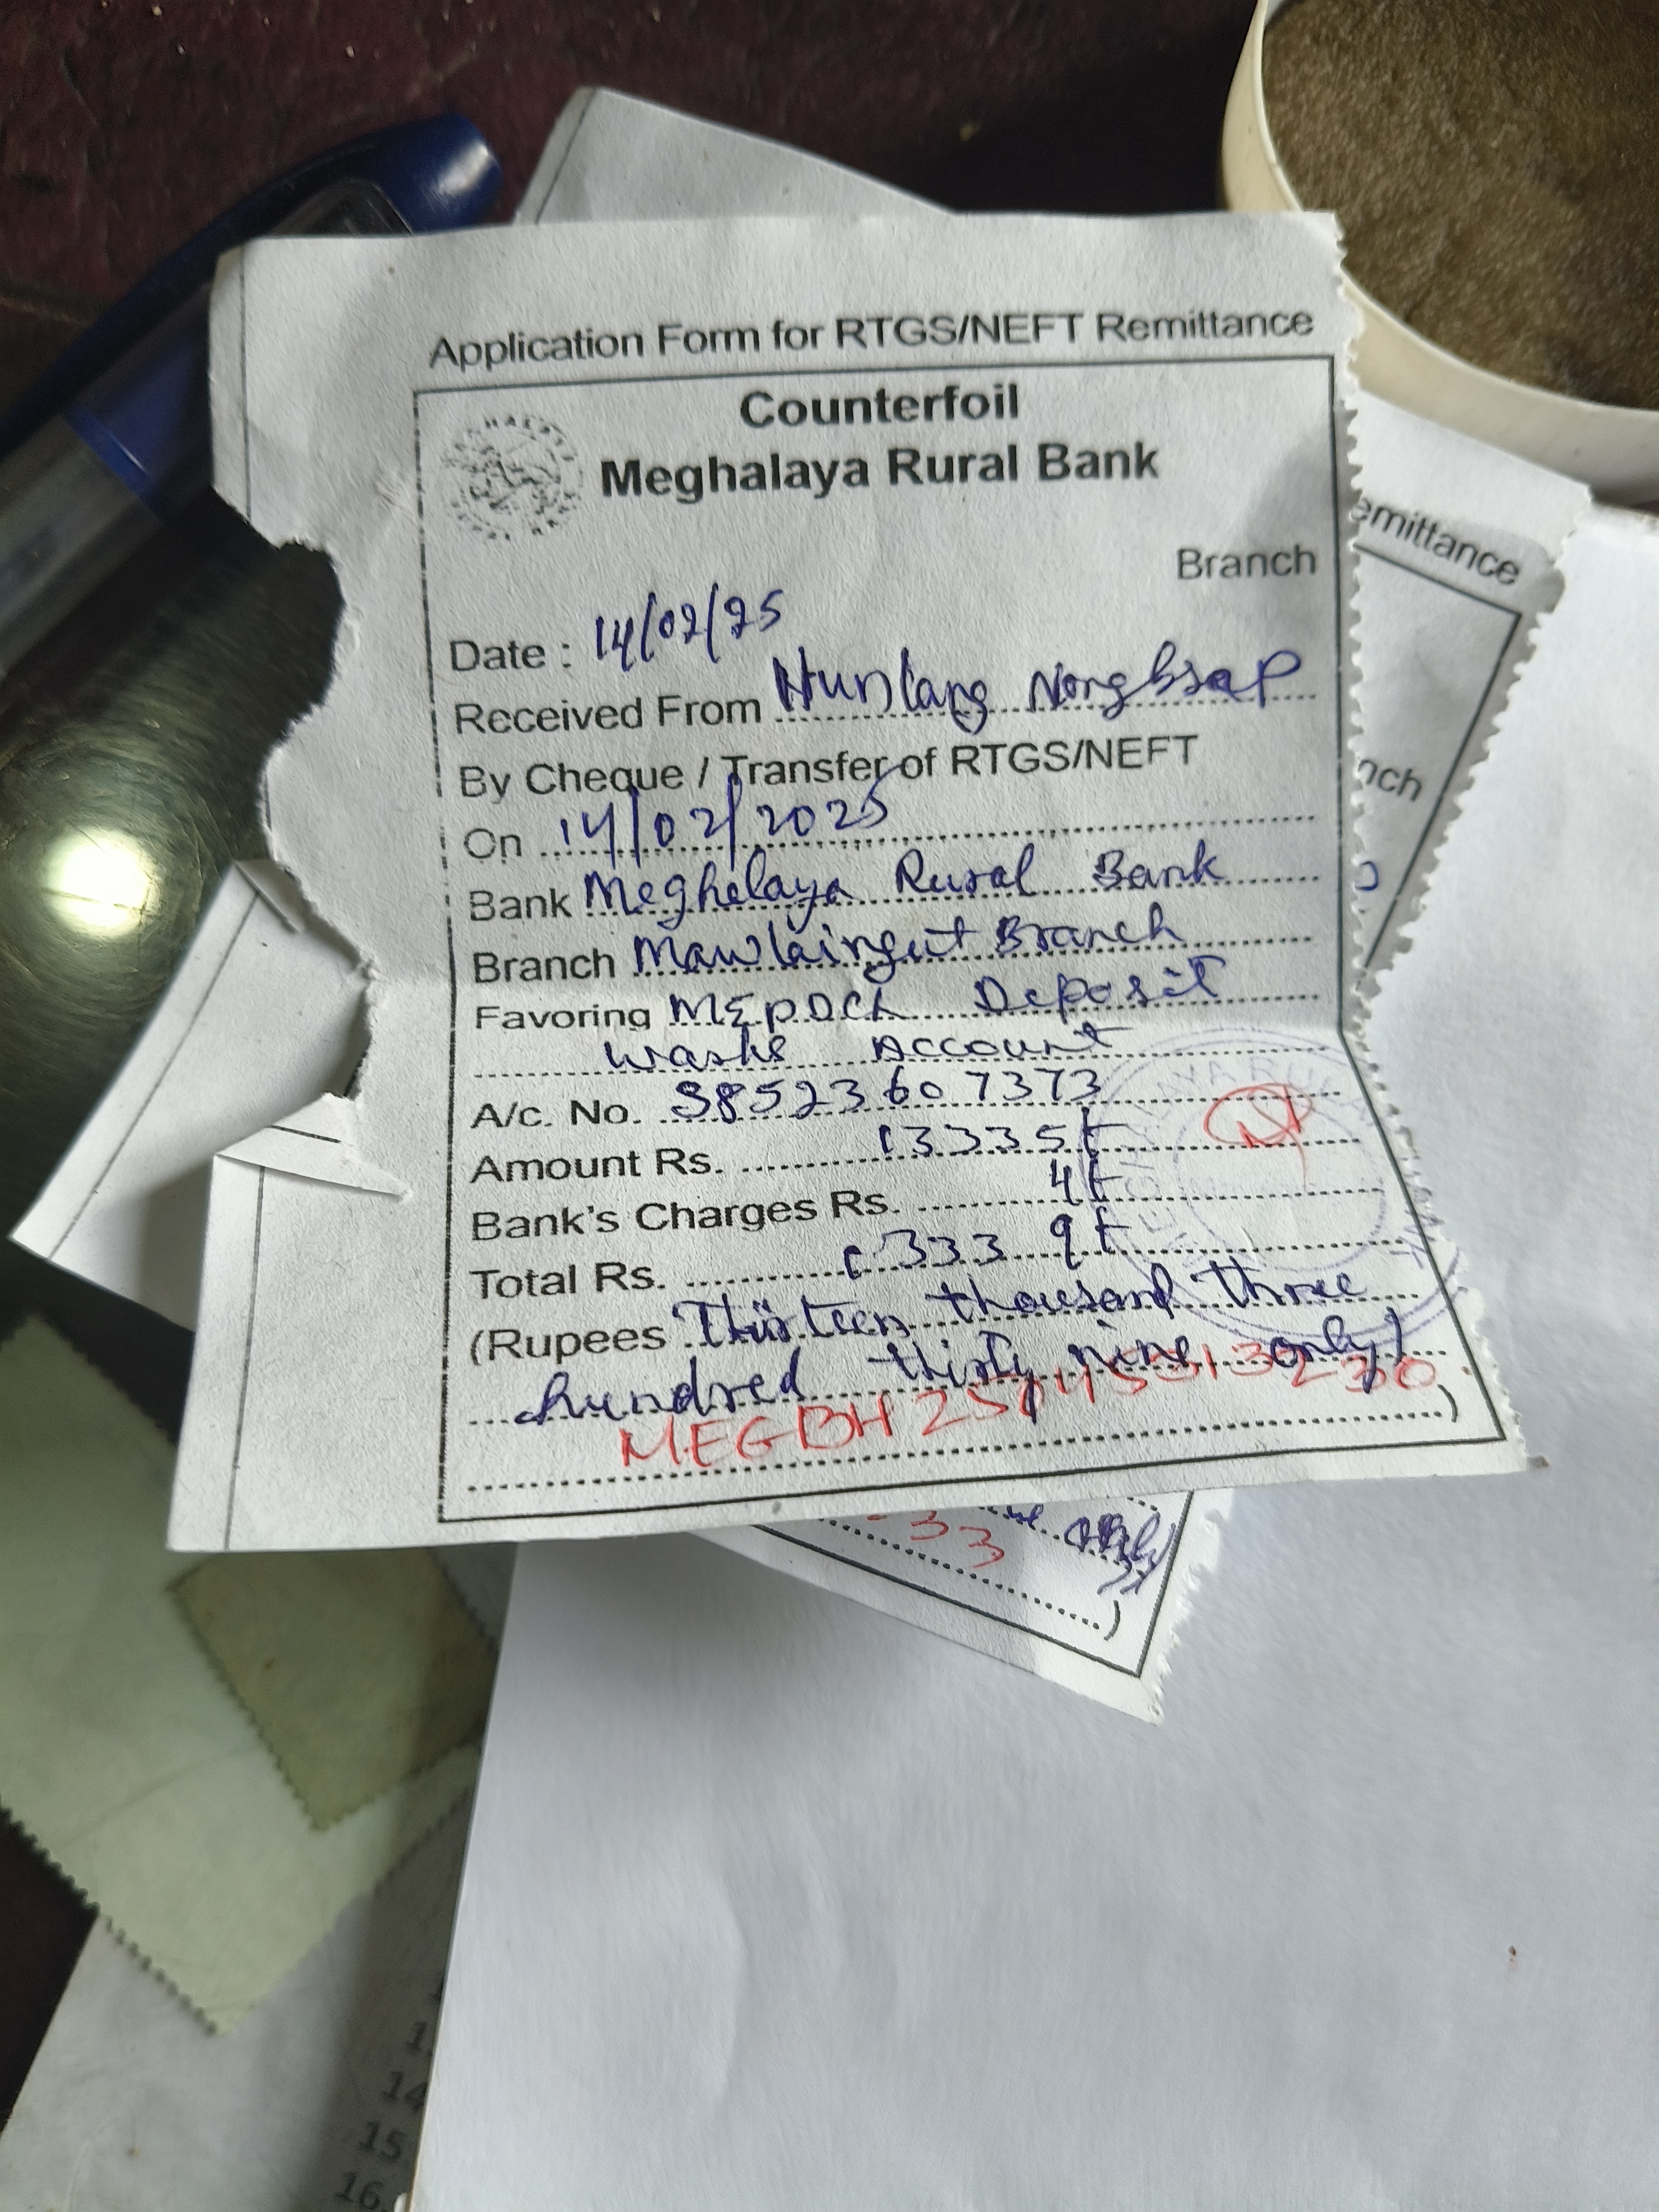 Application Form for RTGS/NEFT Remittance
Counterfoil
Meghalaya Rural Bank
Branch
Date : 14/02/25
Received From Hunlang Nongbsap
By Cheque / Transfer of RTGS/NEFT
On 14/02/2025
Bank Meghalaya Rural Bank
Branch Mawlaingut Branch
Favoring MEPDCL Deposit
Works Account
A/c. No. 38523607373
Amount Rs. 13335
Bank's Charges Rs. 4
Total Rs. 13339
(Rupees Thirteen thousand three
hundred thirty nine only)
MEGBH
)
emittance
nch
33
)
14
15
16.